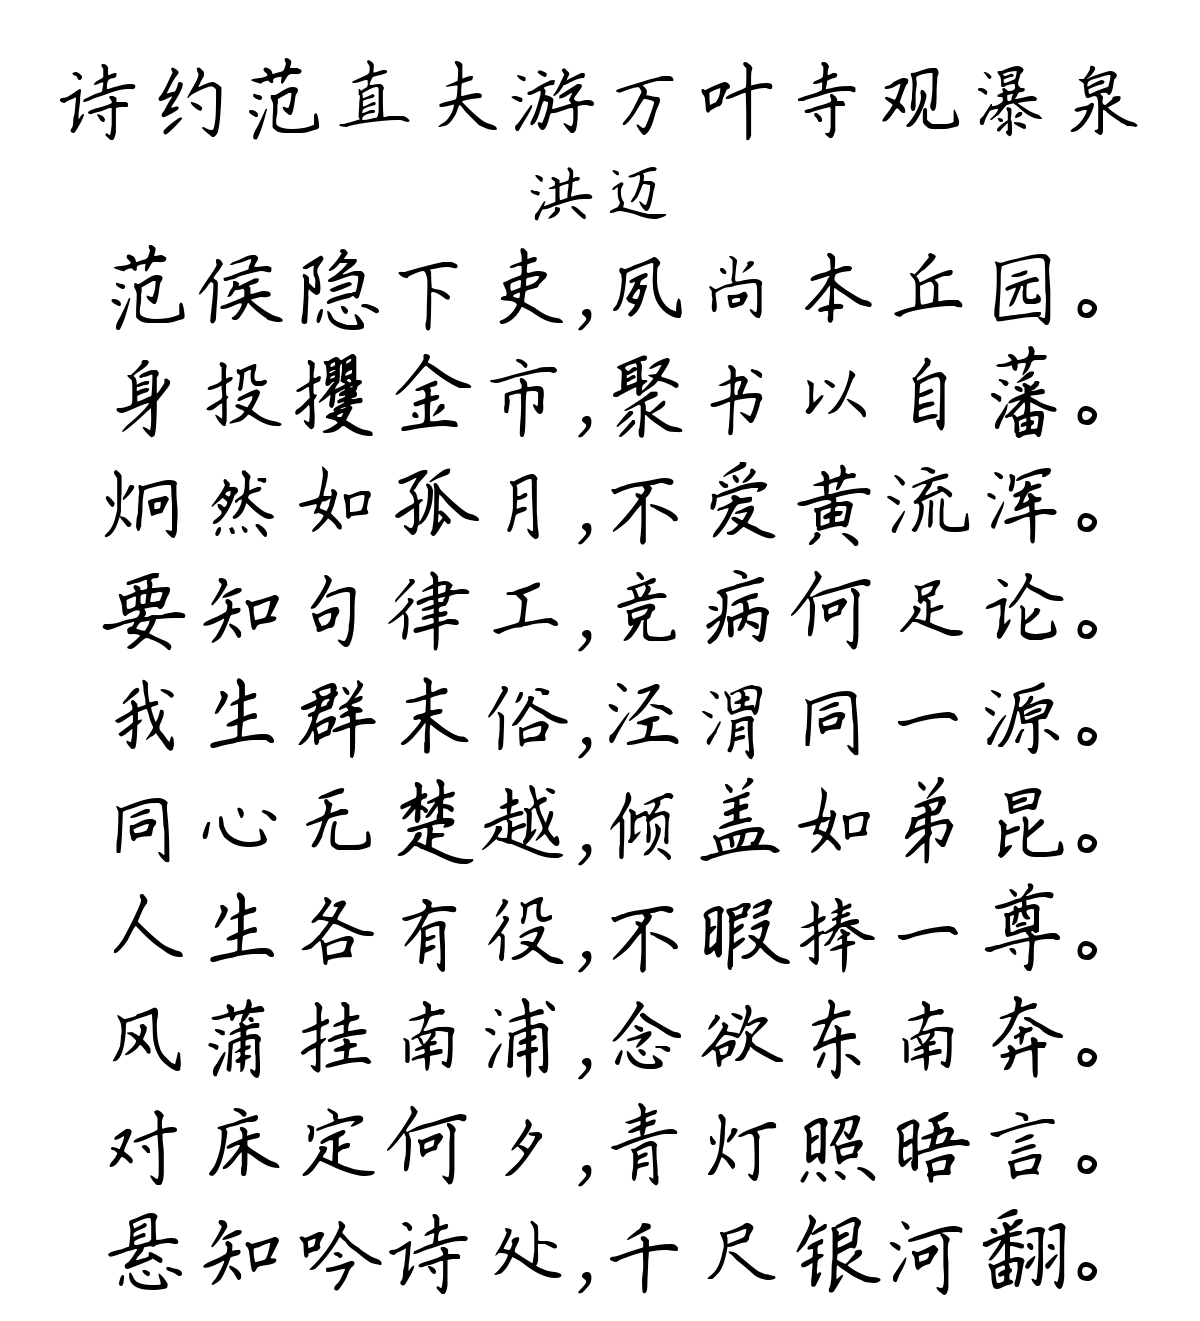 诗约范直夫游万叶寺观瀑泉
洪迈
范侯隐下吏,夙尚本丘园。
身投攫金市,聚书以自藩。
炯然如孤月,不爱黄流浑。
要知句律工,竞病何足论。
我生群末俗,泾渭同一源。
同心无楚越,倾盖如弟昆。
人生各有役,不暇捧一尊。
风蒲挂南浦,念欲东南奔。
对床定何夕,青灯照晤言。
悬知吟诗处,千尺银河翻。